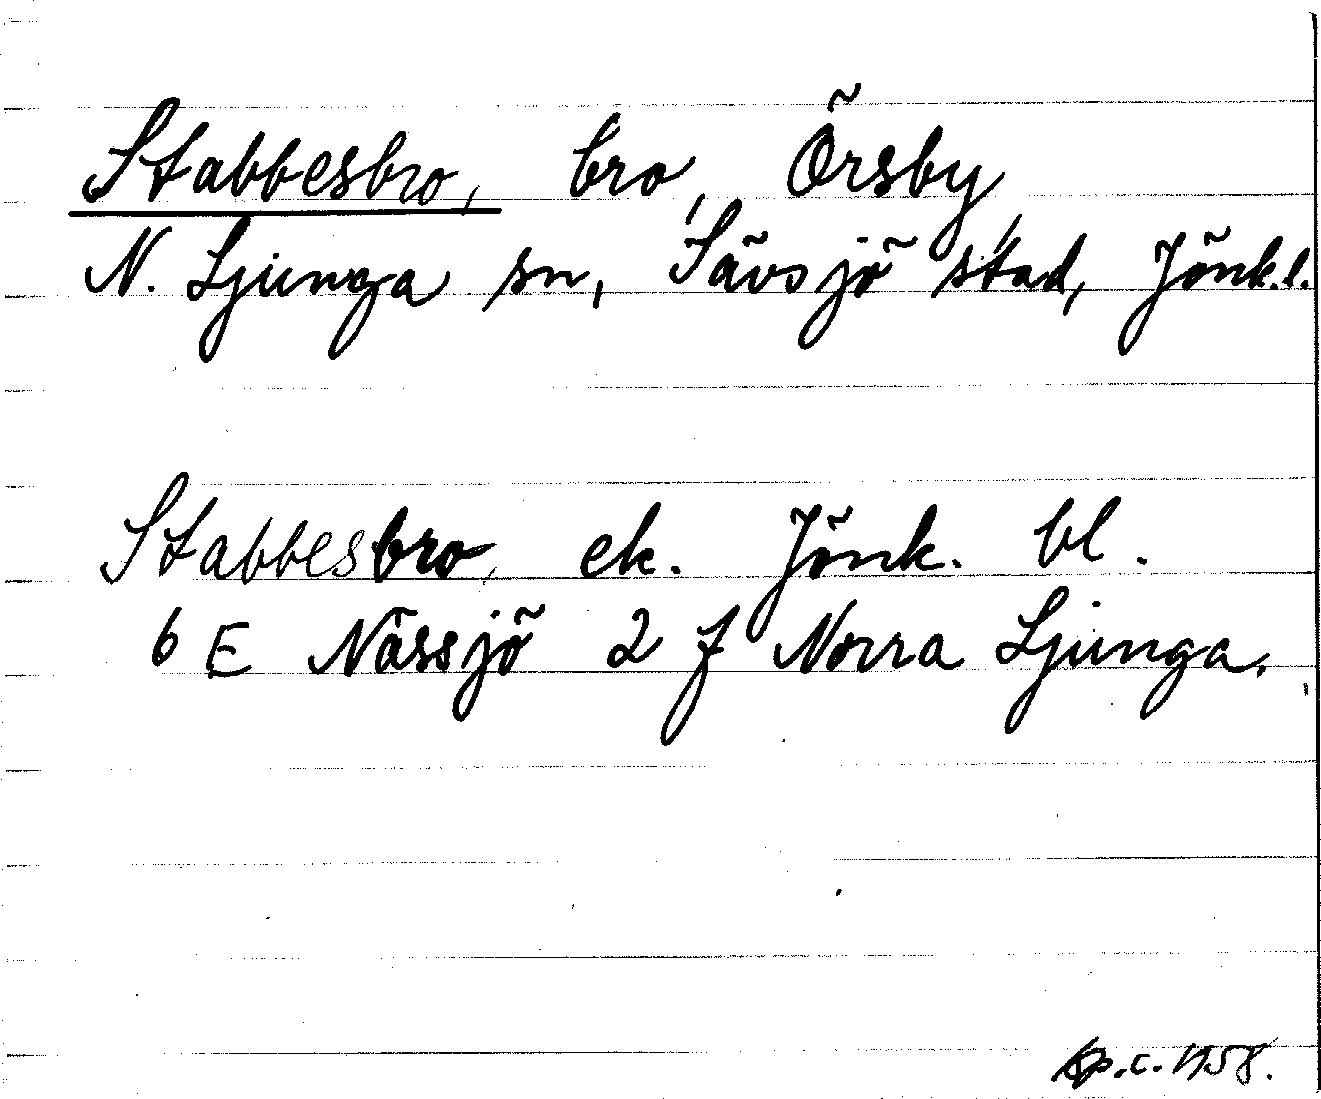 Stabbesbro, bro, Örsby
N. Ljunga sn, Sävsjö stad, Jönk.l.
Stabbesbro, ek. Jönk. bl.
6 E Nässjö 2 f Norra Ljunga.
Kp.c. 1958.